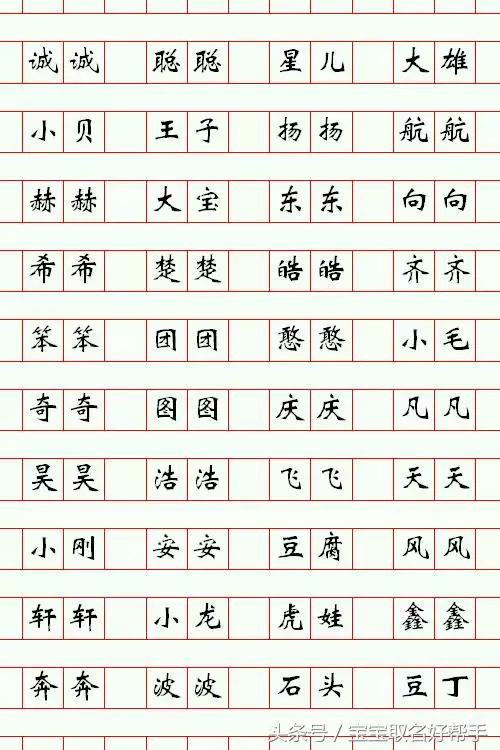 诚诚 聪聪 星儿 大雄
小贝 王子 扬扬 航航
赫赫 大宝 东东 向向
希希 楚楚 皓皓 齐齐
笨笨 团团 憨憨 小毛
奇奇 图图 庆庆 凡凡
昊昊 浩浩 飞飞 天天
小刚 安安 豆腐 风风
轩轩 小龙 虎娃 鑫鑫
奔奔 波波 石头 豆丁
头条号/宝宝取名好帮手